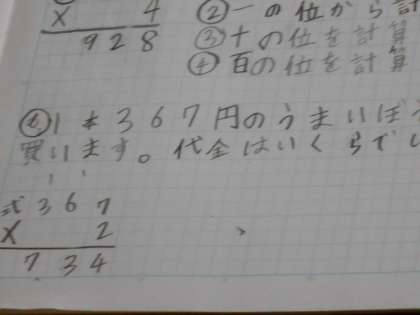 ② 一の位から計
× 4
③ 十の位を計算
928
④ 百の位を計算
⑥ 1本367円のうまいぼう
買います。代金はいくらでし
式 367
× 2
734